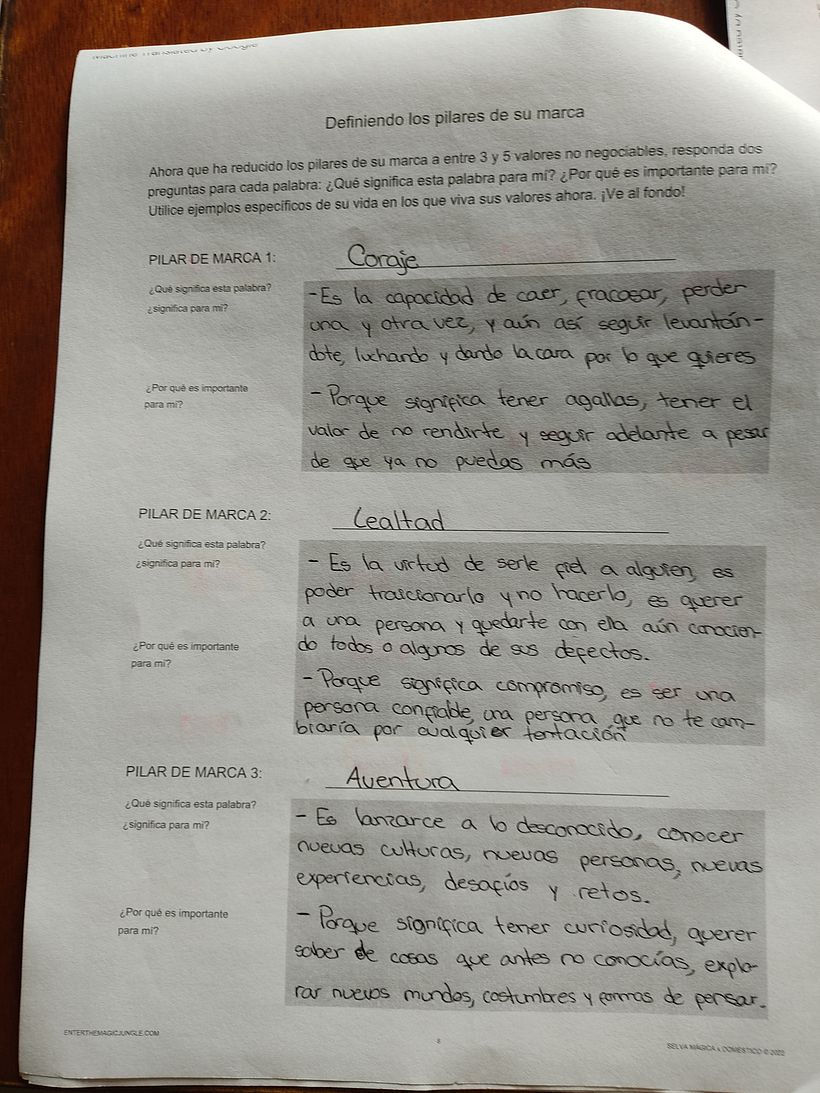 Machine Translated by Google
Definiendo los pilares de su marca
Ahora que ha reducido los pilares de su marca a entre 3 y 5 valores no negociables, responda dos
preguntas para cada palabra: ¿Qué significa esta palabra para mí? ¿Por qué es importante para mí?
Utilice ejemplos específicos de su vida en los que viva sus valores ahora. ¡Ve al fondo!
PILAR DE MARCA 1:
Coraje
¿Qué significa esta palabra?
¿significa para mí?
-Es la capacidad de caer, fracasar, perder
una y otra vez, y aún así seguir levantán-
dote, luchando y dando la cara por lo que quieres
¿Por qué es importante
para mí?
- Porque significa tener agallas, tener el
valor de no rendirte y seguir adelante a pesar
de que ya no puedas más
PILAR DE MARCA 2:
Lealtad
¿Qué significa esta palabra?
¿significa para mí?
- Es la virtud de serle fiel a alguien, es
poder traicionarlo y no hacerlo, es querer
a una persona y quedarte con ella aún conocien-
do todos o algunos de sus defectos.
¿Por qué es importante
para mí?
- Porque significa compromiso, es ser una
persona confiable, una persona que no te cam-
biaría por cualquier tentación
PILAR DE MARCA 3:
Aventura
¿Qué significa esta palabra?
¿significa para mí?
- Es lanzarce a lo desconocido, conocer
nuevas culturas, nuevas personas, nuevas
experiencias, desafíos y retos.
¿Por qué es importante
para mí?
- Porque significa tener curiosidad, querer
saber de cosas que antes no conocías, explo-
rar nuevos mundos, costumbres y formas de pensar.
ENTERTHEMAGICJUNGLE.COM
8
SELVA MÁGICA x DOMÉSTICO © 2022